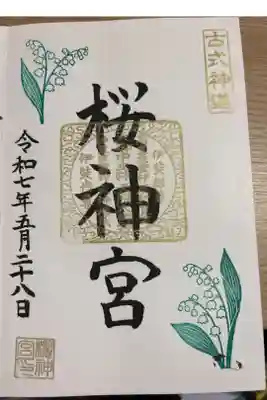 古式神道
桜神宮
令和七年五月二十八日